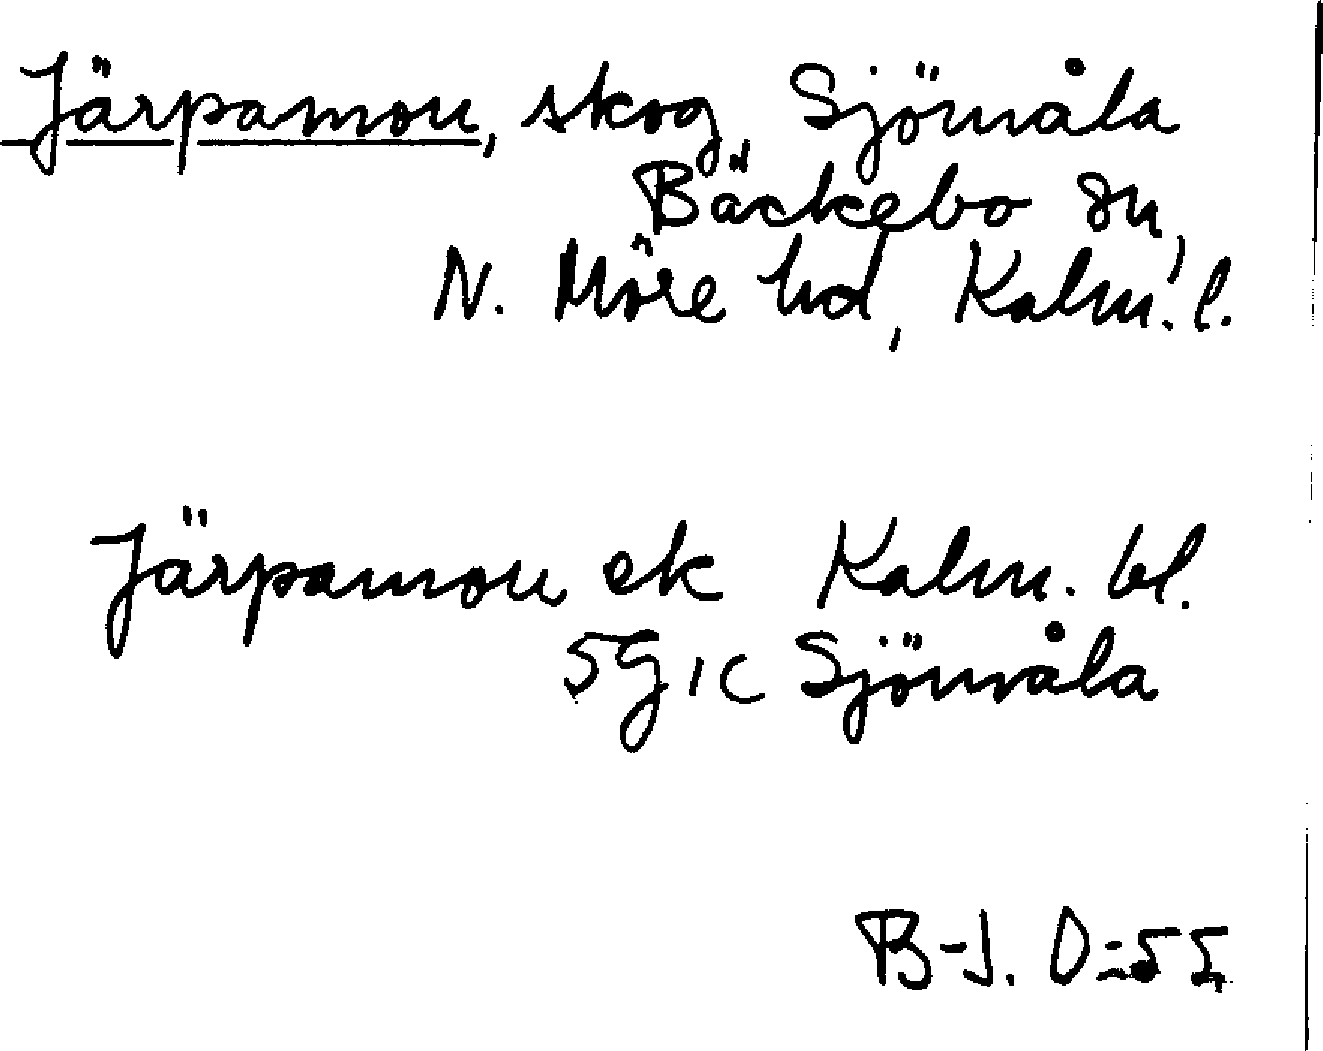 Järpamon, skog, Sjönvåla
Bäckebo sn,
N. Möre hd, Kalm. l.
Järpamon ek Kalm. bl.
5G 1c Sjönvåla
B-J. O-55